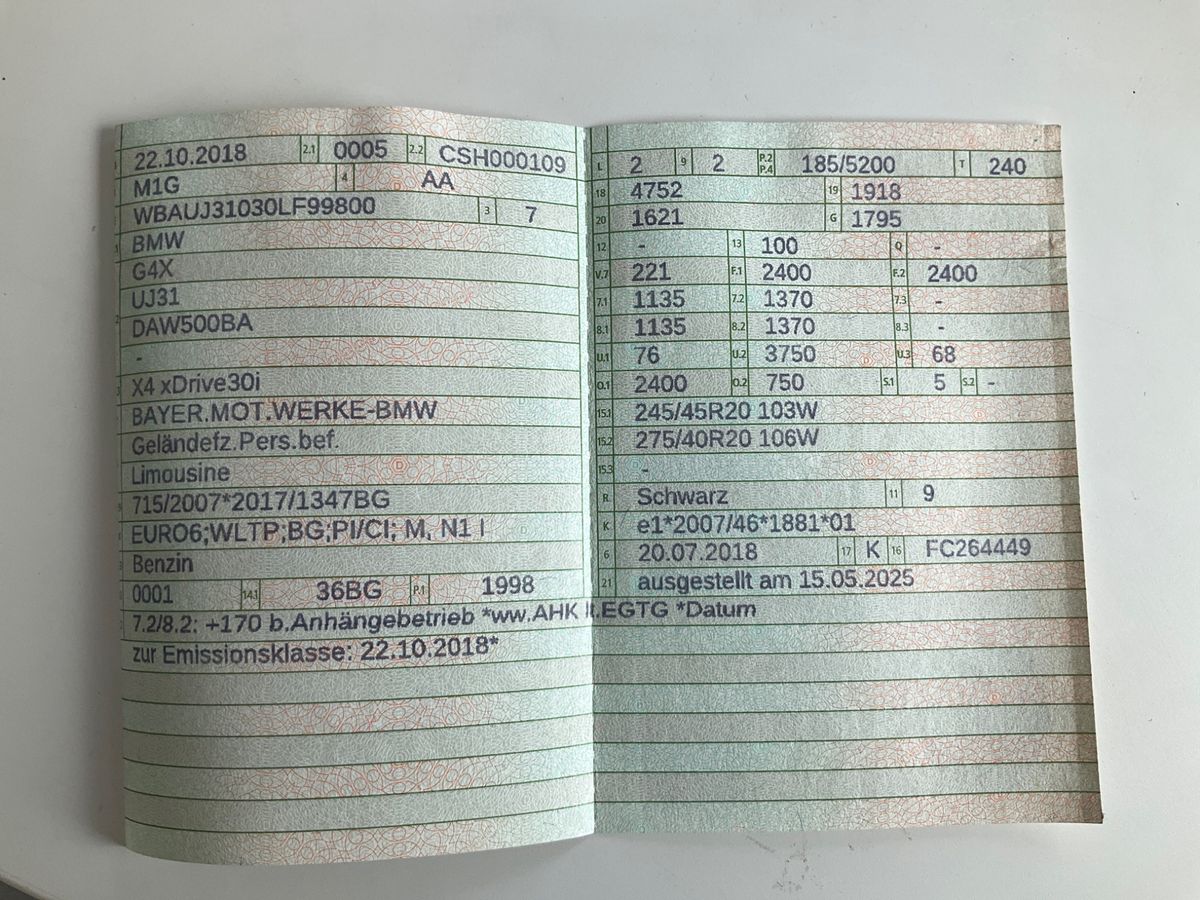 22.10.2018 2.1 0005 2.2 CSH000109
M1G 4 AA
WBAUJ31030LF99800 3 7
BMW
G4X
UJ31
DAW500BA
-
X4 xDrive30i
BAYER.MOT.WERKE-BMW
Geländefz.Pers.bef.
Limousine
715/2007*2017/1347BG
EURO6;WLTP;BG;PI/CI; M, N1 I
Benzin
0001 14.1 36BG P.1 1998
7.2/8.2: +170 b.Anhängebetrieb *ww.AHK lt.EGTG *Datum
zur Emissionsklasse: 22.10.2018*
L 2 9 2 P.2 P.4 185/5200 T 240
18 4752 19 1918
20 1621 G 1795
12 - 13 100 Q -
V.7 221 F.1 2400 F.2 2400
7.1 1135 7.2 1370 7.3 -
8.1 1135 8.2 1370 8.3 -
U.1 76 U.2 3750 U.3 68
O.1 2400 O.2 750 S.1 5 S.2 -
15.1 245/45R20 103W
15.2 275/40R20 106W
15.3 -
R Schwarz 11 9
K e1*2007/46*1881*01
6 20.07.2018 17 K 16 FC264449
21 ausgestellt am 15.05.2025